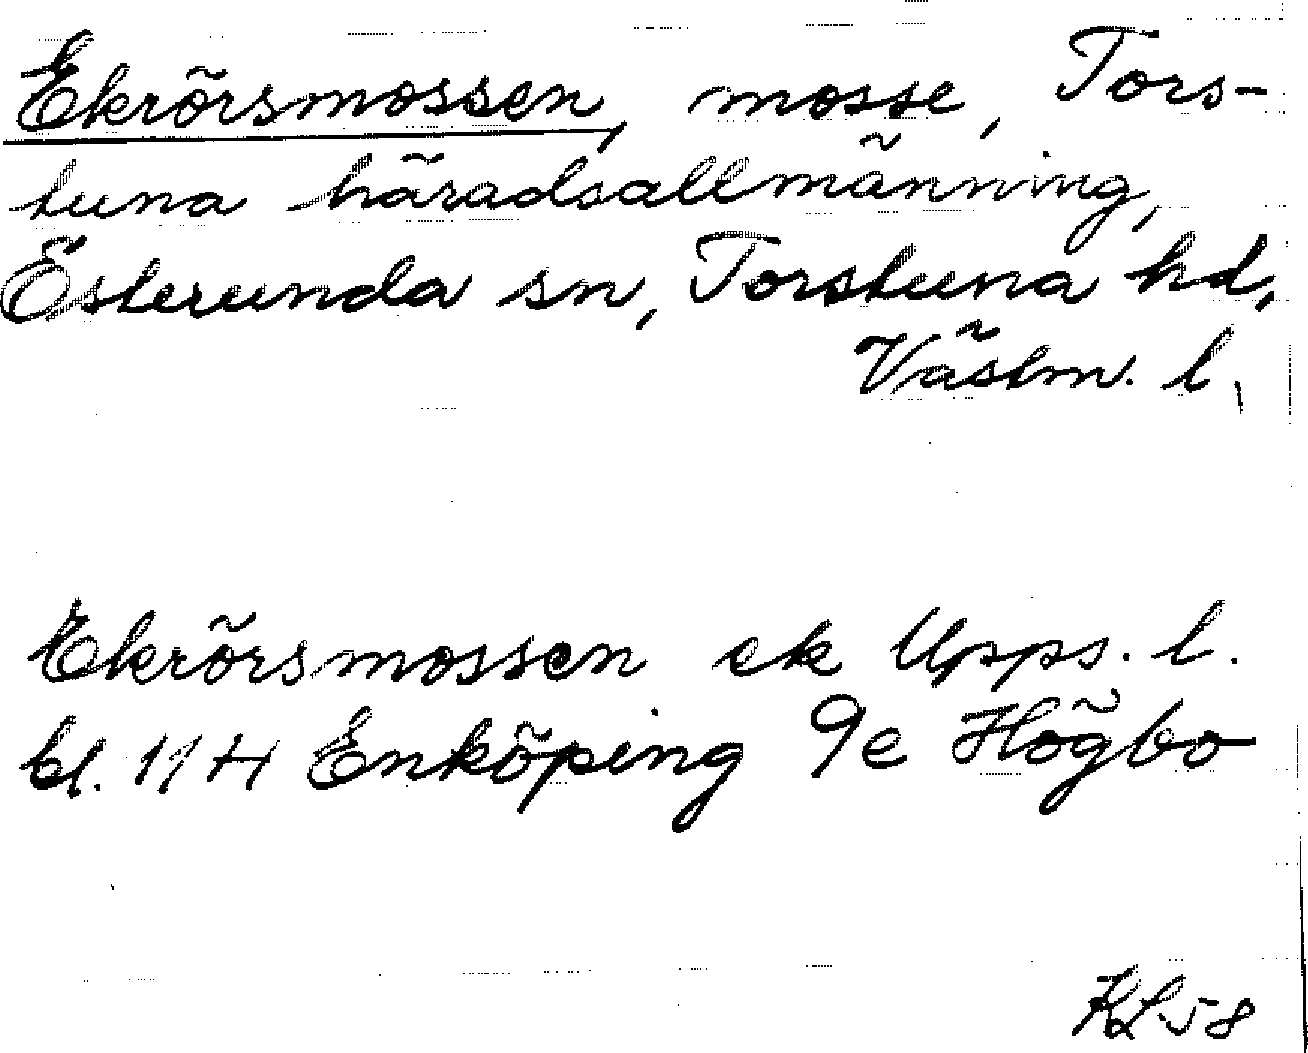 Ekrörsmossen, mosse, Tors-
tuna häradsallmänning,
Österunda sn, Torstuna hd,
Västm. l.
Ekrörsmossen ek Upps. l.
bl. 11H Enköping 9e Högbo
KL 58